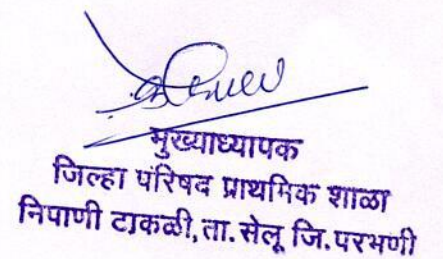 मुख्याध्यापक
जिल्हा परिषद प्राथमिक शाळा
निपाणी टाकळी, ता. सेलू जि. परभणी